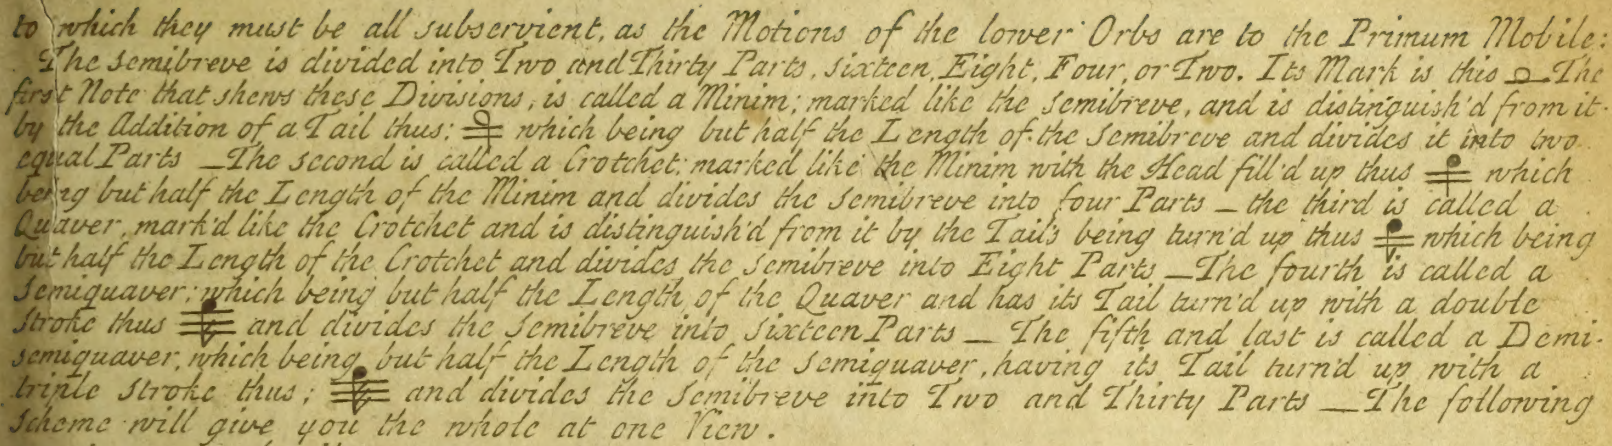 to which they must be all subservient, as the Motions of the lower Orbs are to the Primum Mobile:
The Semibreve is divided into Two and Thirty Parts, Sixteen, Eight, Four, or Two. Its Mark is this — The
first Note that shews these Divisions, is called a Minim; marked like the Semibreve, and is distinguish'd from it
by the Addition of a Tail thus: which being but half the Length of the Semibreve and divides it into two
equal Parts — The second is called a Crotchet: marked like the Minim with the Head fill'd up thus which
being but half the Length of the Minim and divides the Semibreve into four Parts — the third is called a
Quaver, mark'd like the Crotchet and is distinguish'd from it by the Tail's being turn'd up thus which being
but half the Length of the Crotchet and divides the Semibreve into Eight Parts — The fourth is called a
Semiquaver: which being but half the Length of the Quaver and has its Tail turn'd up with a double
Stroke thus and divides the Semibreve into Sixteen Parts — The fifth and last is called a Demi-
semiquaver, which being but half the Length of the Semiquaver, having its Tail turn'd up with a
triple Stroke thus; and divides the Semibreve into Two and Thirty Parts — The following
Scheme will give you the whole at one View.